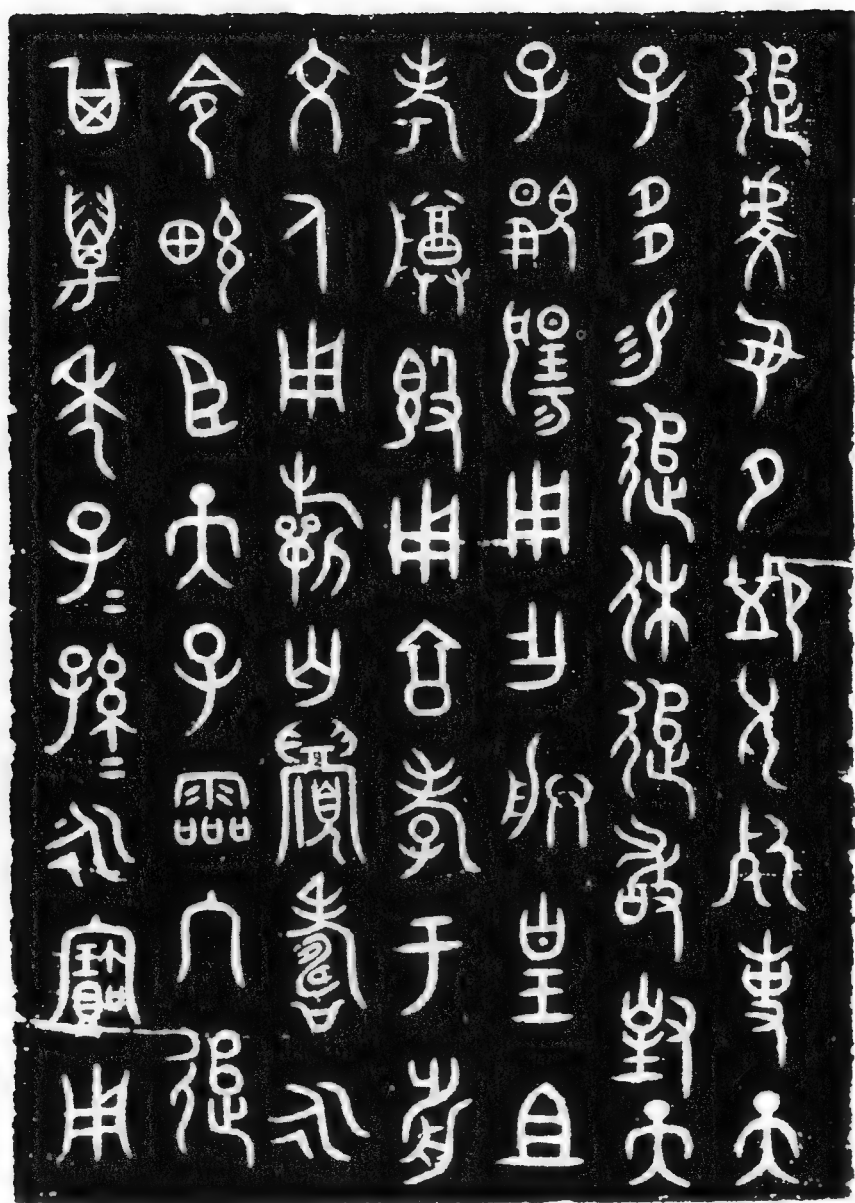 追虔夙夕卹厥死事天
子多易追休追敢對天
子覭揚用乍朕皇且
考尊簋用亯孝于前
文人用祈匄眉壽永
令畯臣天子霝冬追
其萬年子=孫=永寶用